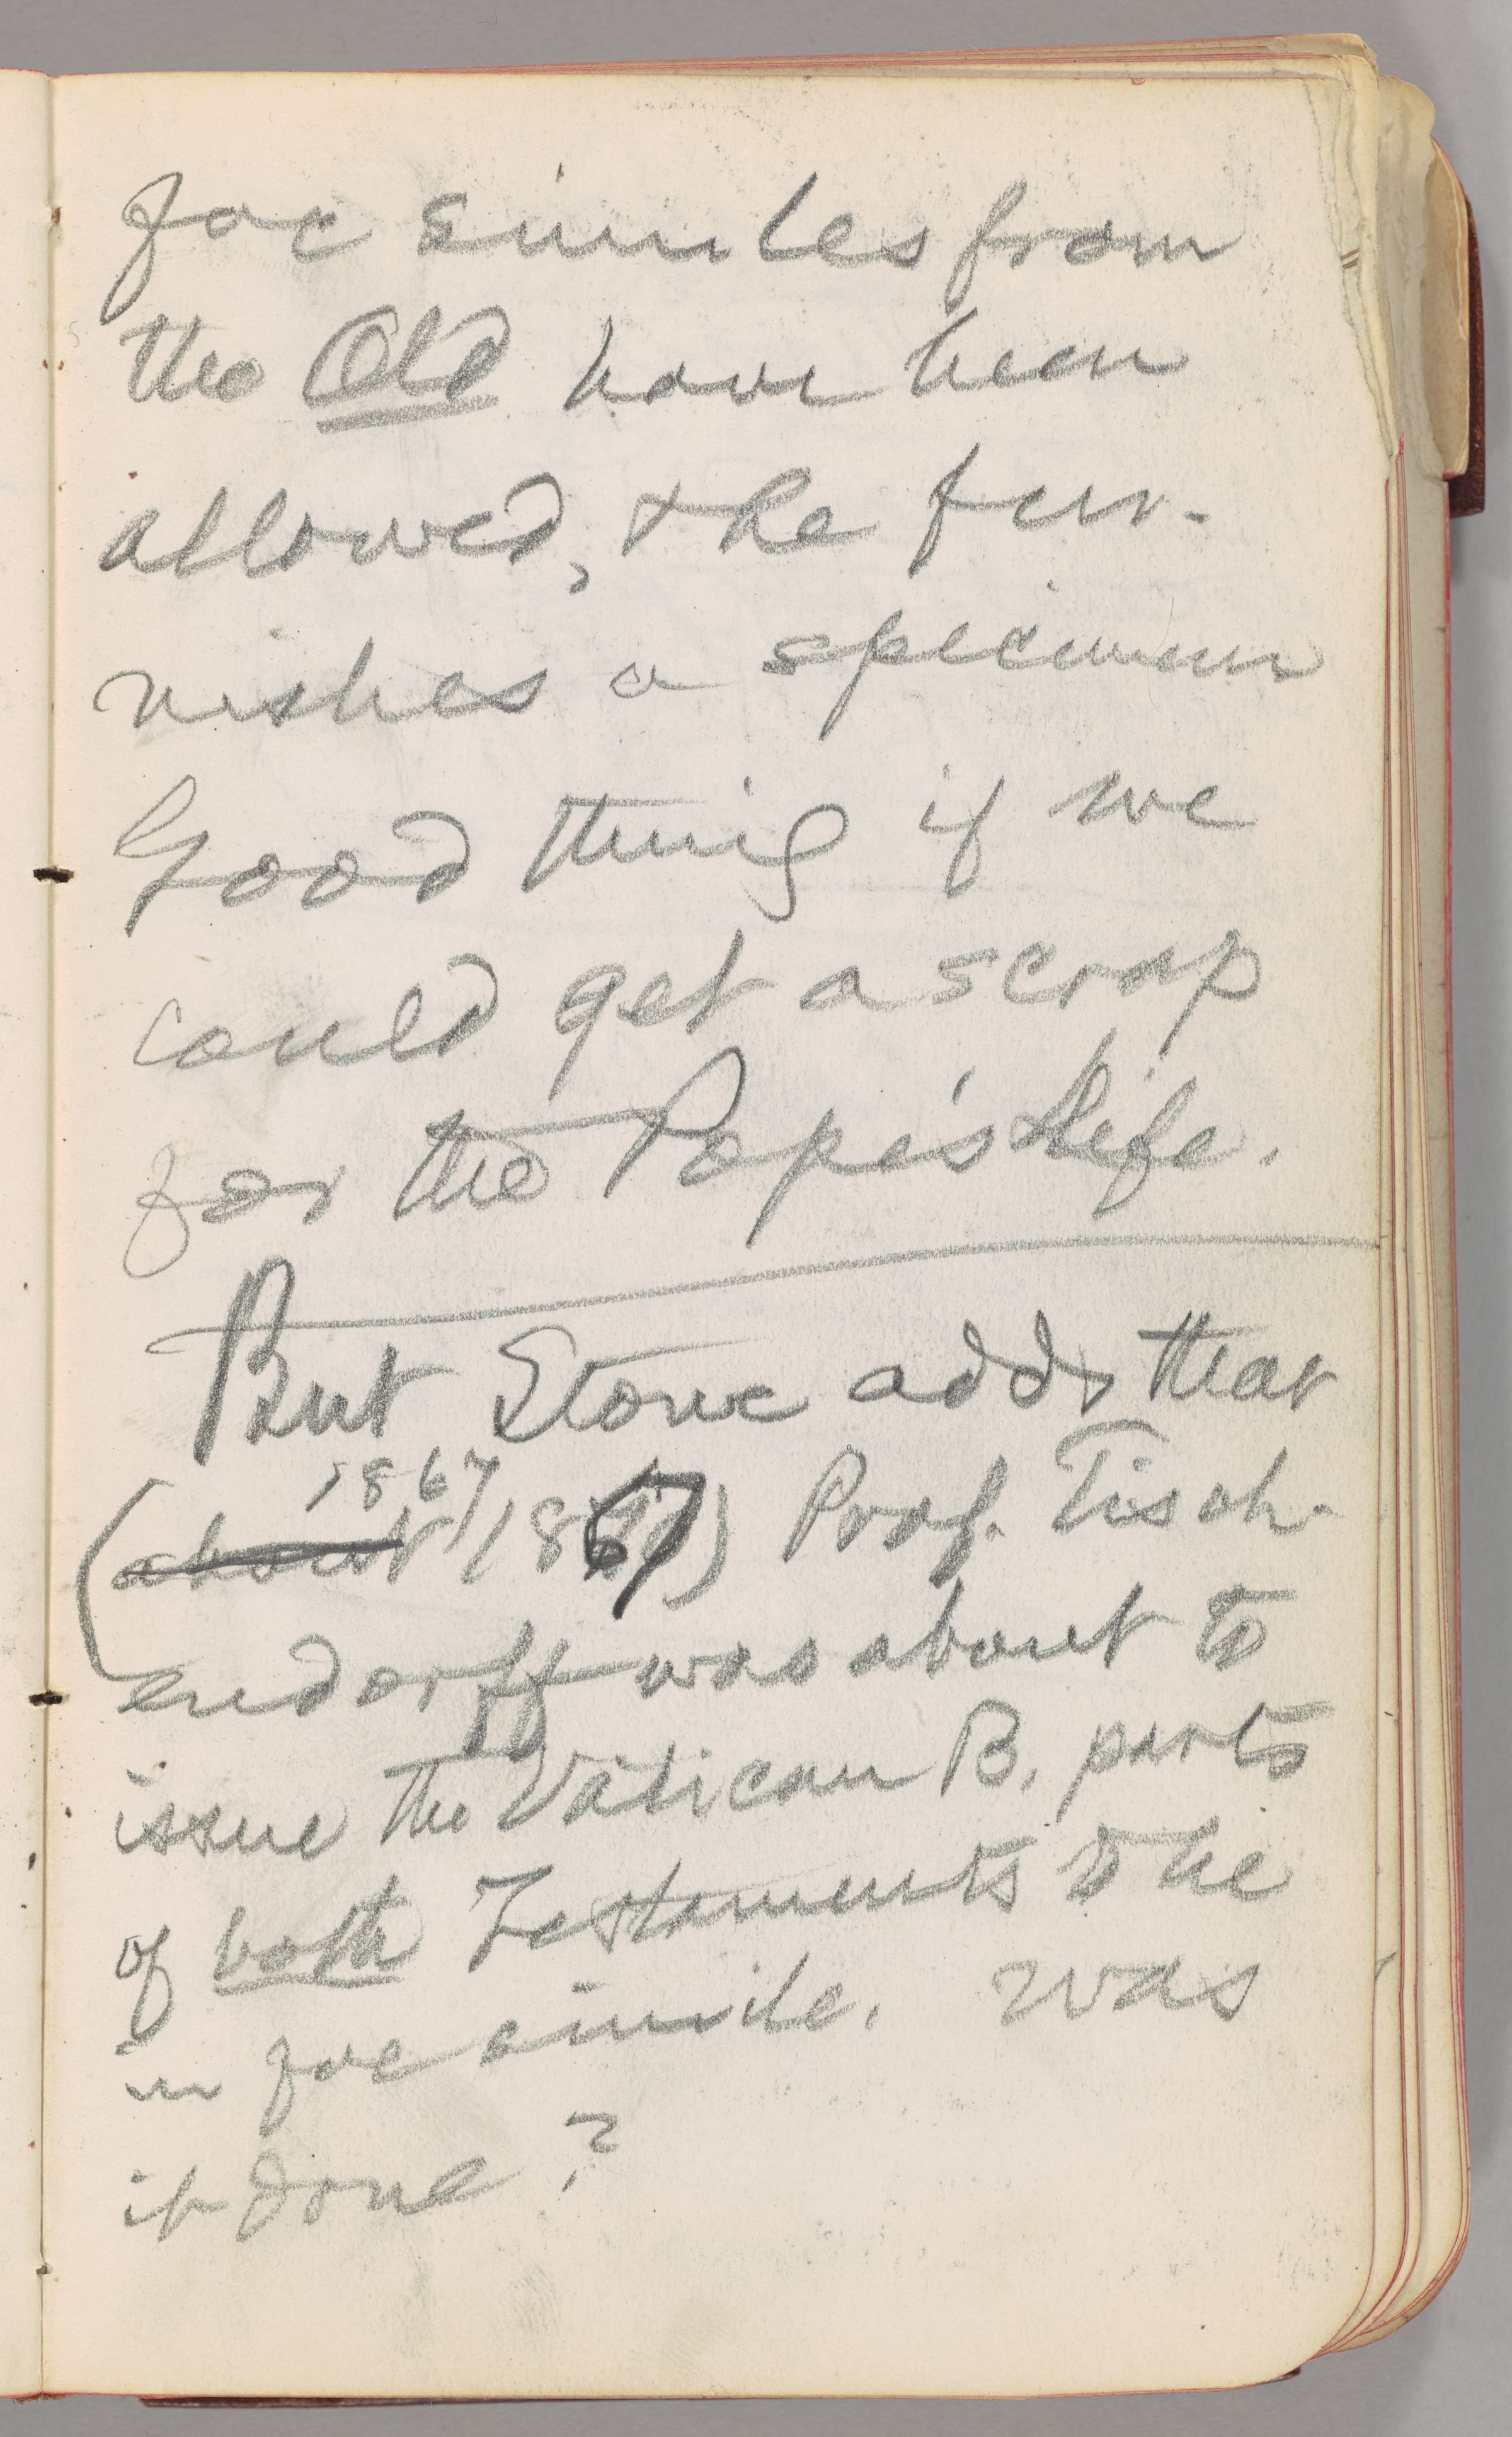 fac similes from
the Old have been
allowed, & he fur-
nishes a specimen
Good thing if we
could get a scrap
for the Pope's Life.
But Stowe adds that
1867
(about 1867) Prof. Tisch-
endorff was about to
issue the Vatican B. parts
of both Testaments to be
in fac simile. Was
it done?